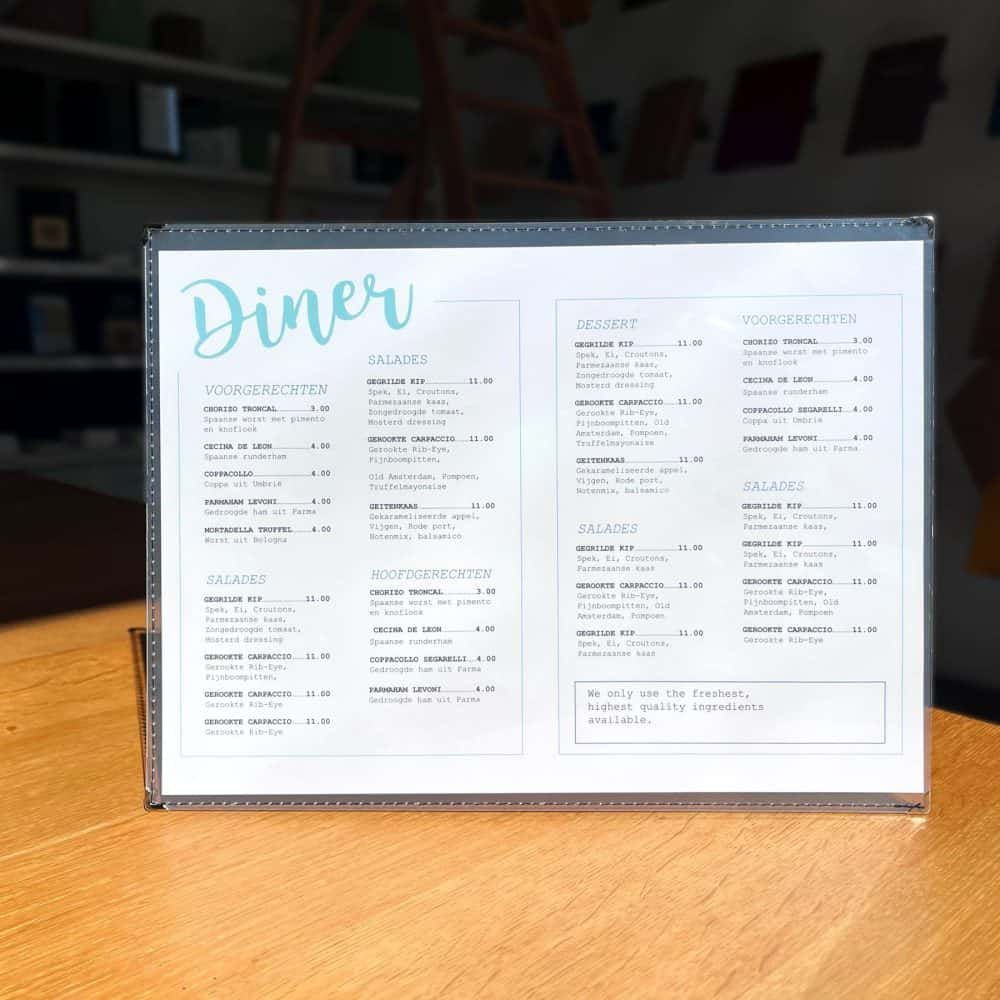 Diner
VOORGERECHTEN
CHORIZO TRONCAL 3.00
Spaanse worst met pimento
en knoflook
CECINA DE LEON 4.00
Spaanse runderham
COPPACOLLO 4.00
Coppa uit Umbrië
PARMAHAM LEVONI 4.00
Gedroogde ham uit Parma
MORTADELLA TRUFFEL 4.00
Worst uit Bologna
SALADES
GEGRILDE KIP 11.00
Spek, Ei, Croutons,
Parmezaanse kaas,
Zongedroogde tomaat,
Mosterd dressing
GEROOKTE CARPACCIO 11.00
Gerookte Rib-Eye,
Pijnboompitten,
GEROOKTE CARPACCIO 11.00
Gerookte Rib-Eye
GEROOKTE CARPACCIO 11.00
Gerookte Rib-Eye
SALADES
GEGRILDE KIP 11.00
Spek, Ei, Croutons,
Parmezaanse kaas,
Zongedroogde tomaat,
Mosterd dressing
GEROOKTE CARPACCIO 11.00
Gerookte Rib-Eye,
Pijnboompitten,
Old Amsterdam, Pompoen,
Truffelmayonaise
GEITENKAAS 11.00
Gekarameliseerde appel,
Vijgen, Rode port,
Notenmix, balsamico
HOOFDGERECHTEN
CHORIZO TRONCAL 3.00
Spaanse worst met pimento
en knoflook
CECINA DE LEON 4.00
Spaanse runderham
COPPACOLLO SEGARELLI 4.00
Gedroogde ham uit Parma
PARMAHAM LEVONI 4.00
Gedroogde ham uit Parma
DESSERT
GEGRILDE KIP 11.00
Spek, Ei, Croutons,
Parmezaanse kaas,
Zongedroogde tomaat,
Mosterd dressing
GEROOKTE CARPACCIO 11.00
Gerookte Rib-Eye,
Pijnboompitten, Old
Amsterdam, Pompoen,
Truffelmayonaise
GEITENKAAS 11.00
Gekarameliseerde appel,
Vijgen, Rode port,
Notenmix, balsamico
SALADES
GEGRILDE KIP 11.00
Spek, Ei, Croutons,
Parmezaanse kaas
GEROOKTE CARPACCIO 11.00
Gerookte Rib-Eye,
Pijnboompitten, Old
Amsterdam, Pompoen
GEGRILDE KIP 11.00
Spek, Ei, Croutons,
Parmezaanse kaas
VOORGERECHTEN
CHORIZO TRONCAL 3.00
Spaanse worst met pimento
en knoflook
CECINA DE LEON 4.00
Spaanse runderham
COPPACOLLO SEGARELLI 4.00
Coppa uit Umbrië
PARMAHAM LEVONI 4.00
Gedroogde ham uit Parma
SALADES
GEGRILDE KIP 11.00
Spek, Ei, Croutons,
Parmezaanse kaas,
GEGRILDE KIP 11.00
Spek, Ei, Croutons,
Parmezaanse kaas
GEROOKTE CARPACCIO 11.00
Gerookte Rib-Eye,
Pijnboompitten, Old
Amsterdam, Pompoen
GEROOKTE CARPACCIO 11.00
Gerookte Rib-Eye
We only use the freshest,
highest quality ingredients
available.